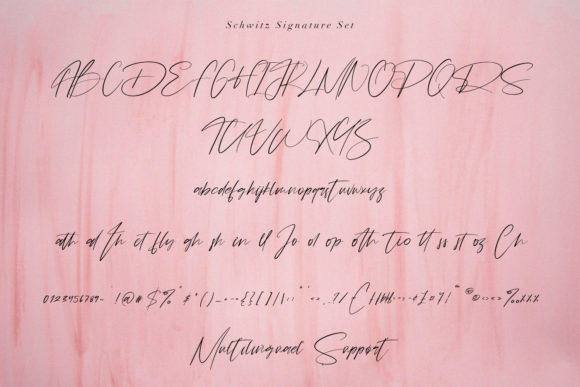 Schwitz Signature Set
ABCDEFGHIJKLMNOPQRS
TUVWXYZ
abcdefghijklmnopqrstuvwxyz
ath ad Th ct fly gh sh in ll Jo ol op oth tio tt ss st oz Ch
0123456789
Multilingual Support